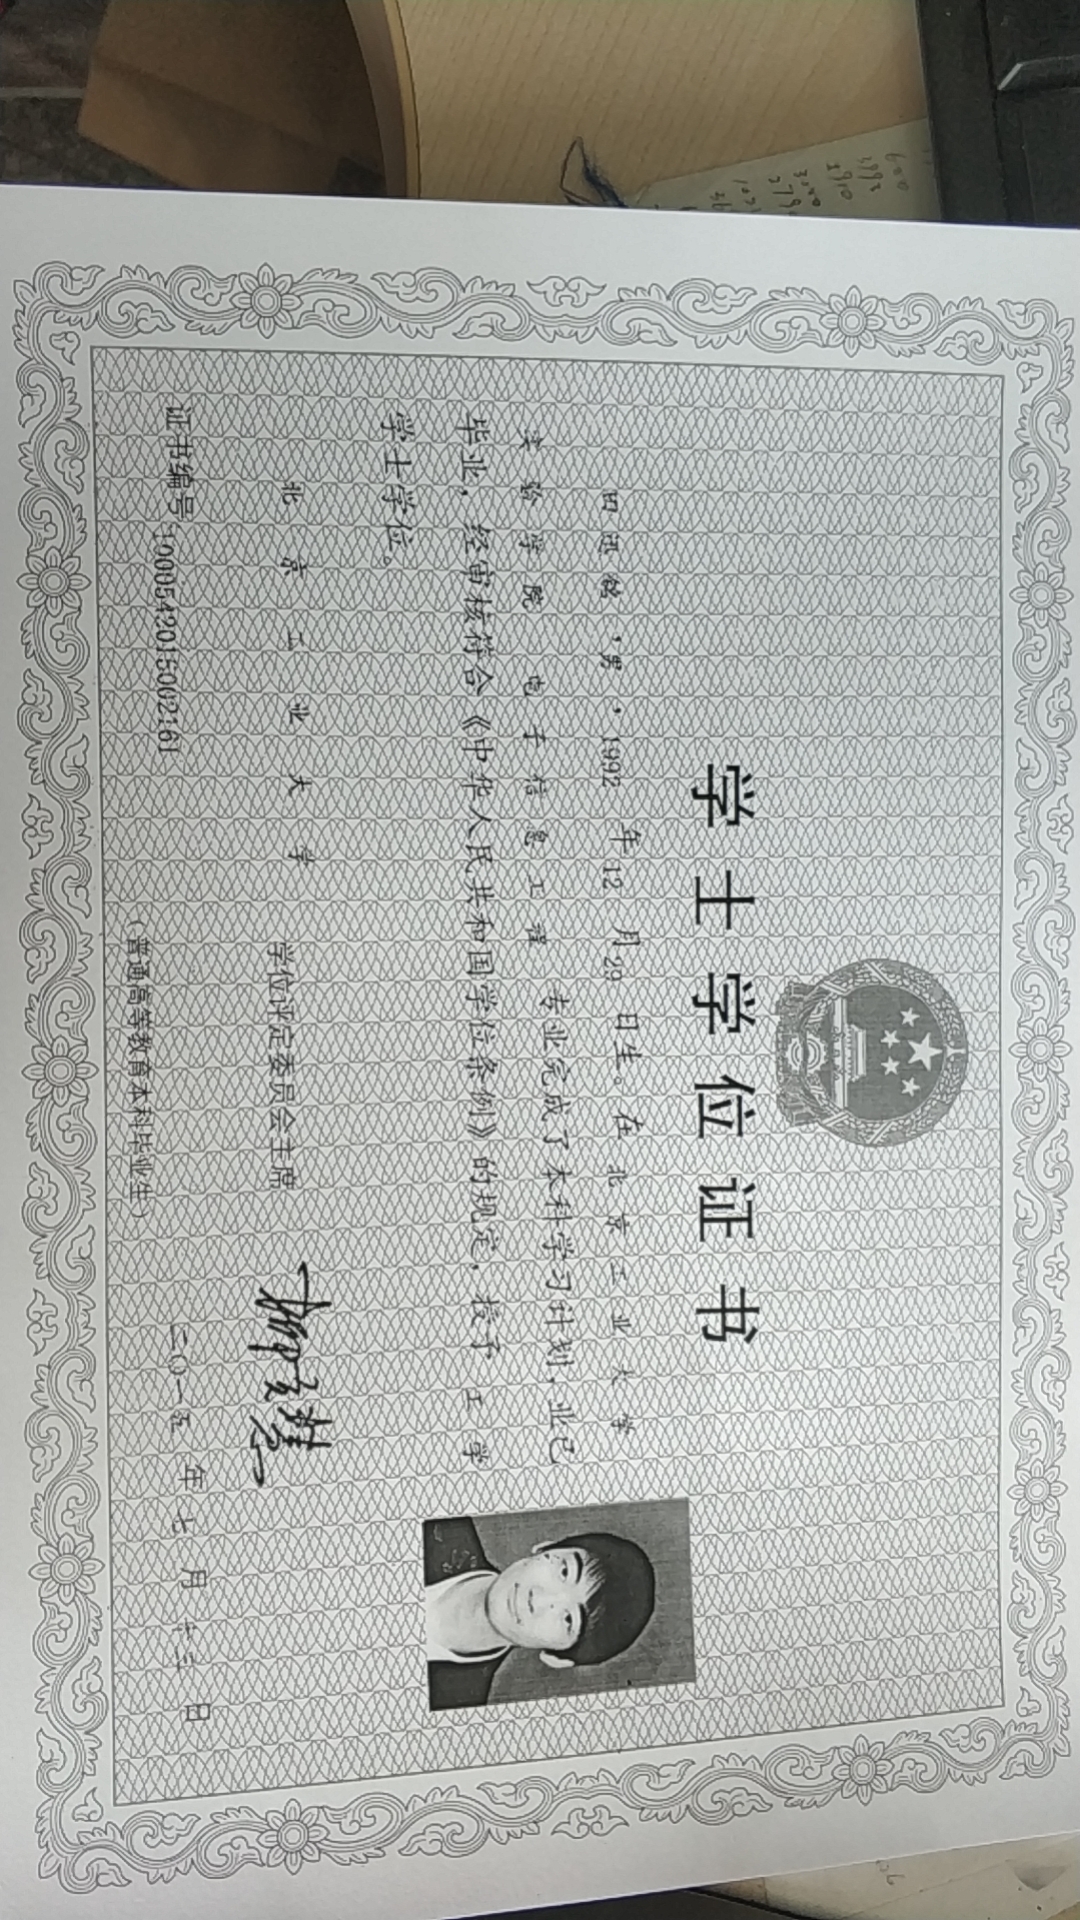 学士学位证书
田迅铭，男，1992年12月29日生。在北京工业大学
实验学院电子信息工程专业完成了本科学习计划，业已
毕业，经审核符合《中华人民共和国学位条例》的规定，授予工学
学士学位。
北京工业大学 学位评定委员会主席
证书编号 1000542015002161 二〇一五年七月十三日
（普通高等教育本科毕业生）
600
3992
1910